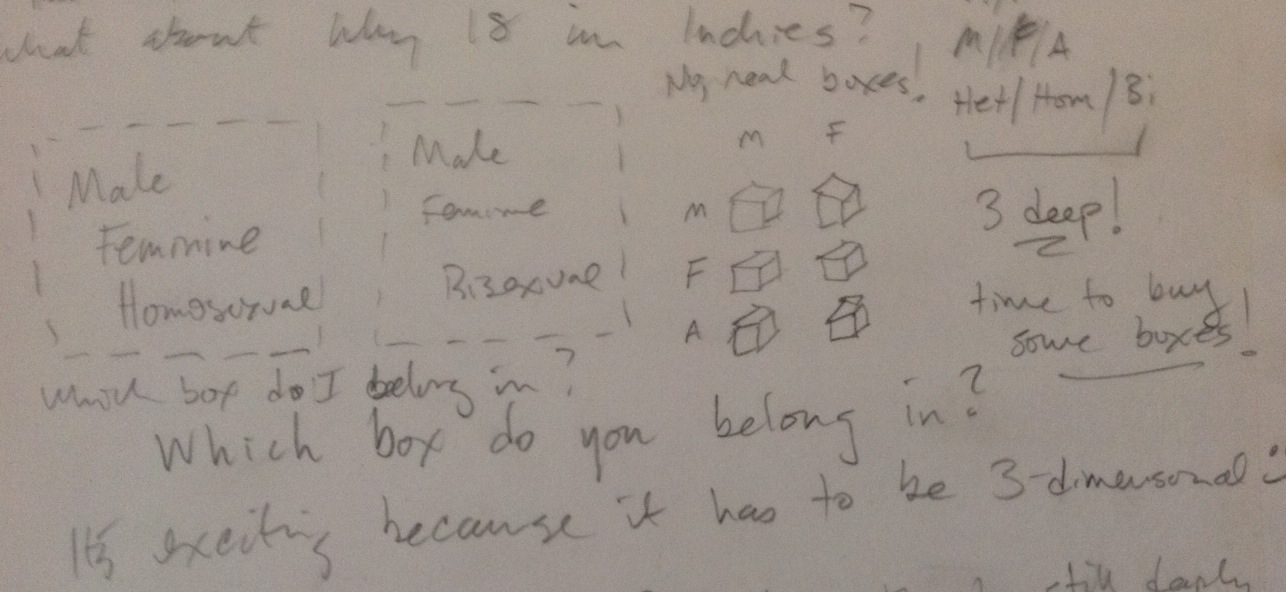 what about why 18 in Indries?
No, real boxes!
M/F/A
Het/Hom/Bi
3 deep!
time to buy
some boxes!
Male
Feminine
Homosexual
Male
Feminine
Bisexual
M F
M
F
A
Which box do I belong in?
Which box do you belong in?
It's exciting because it has to be 3-dimensional :
still